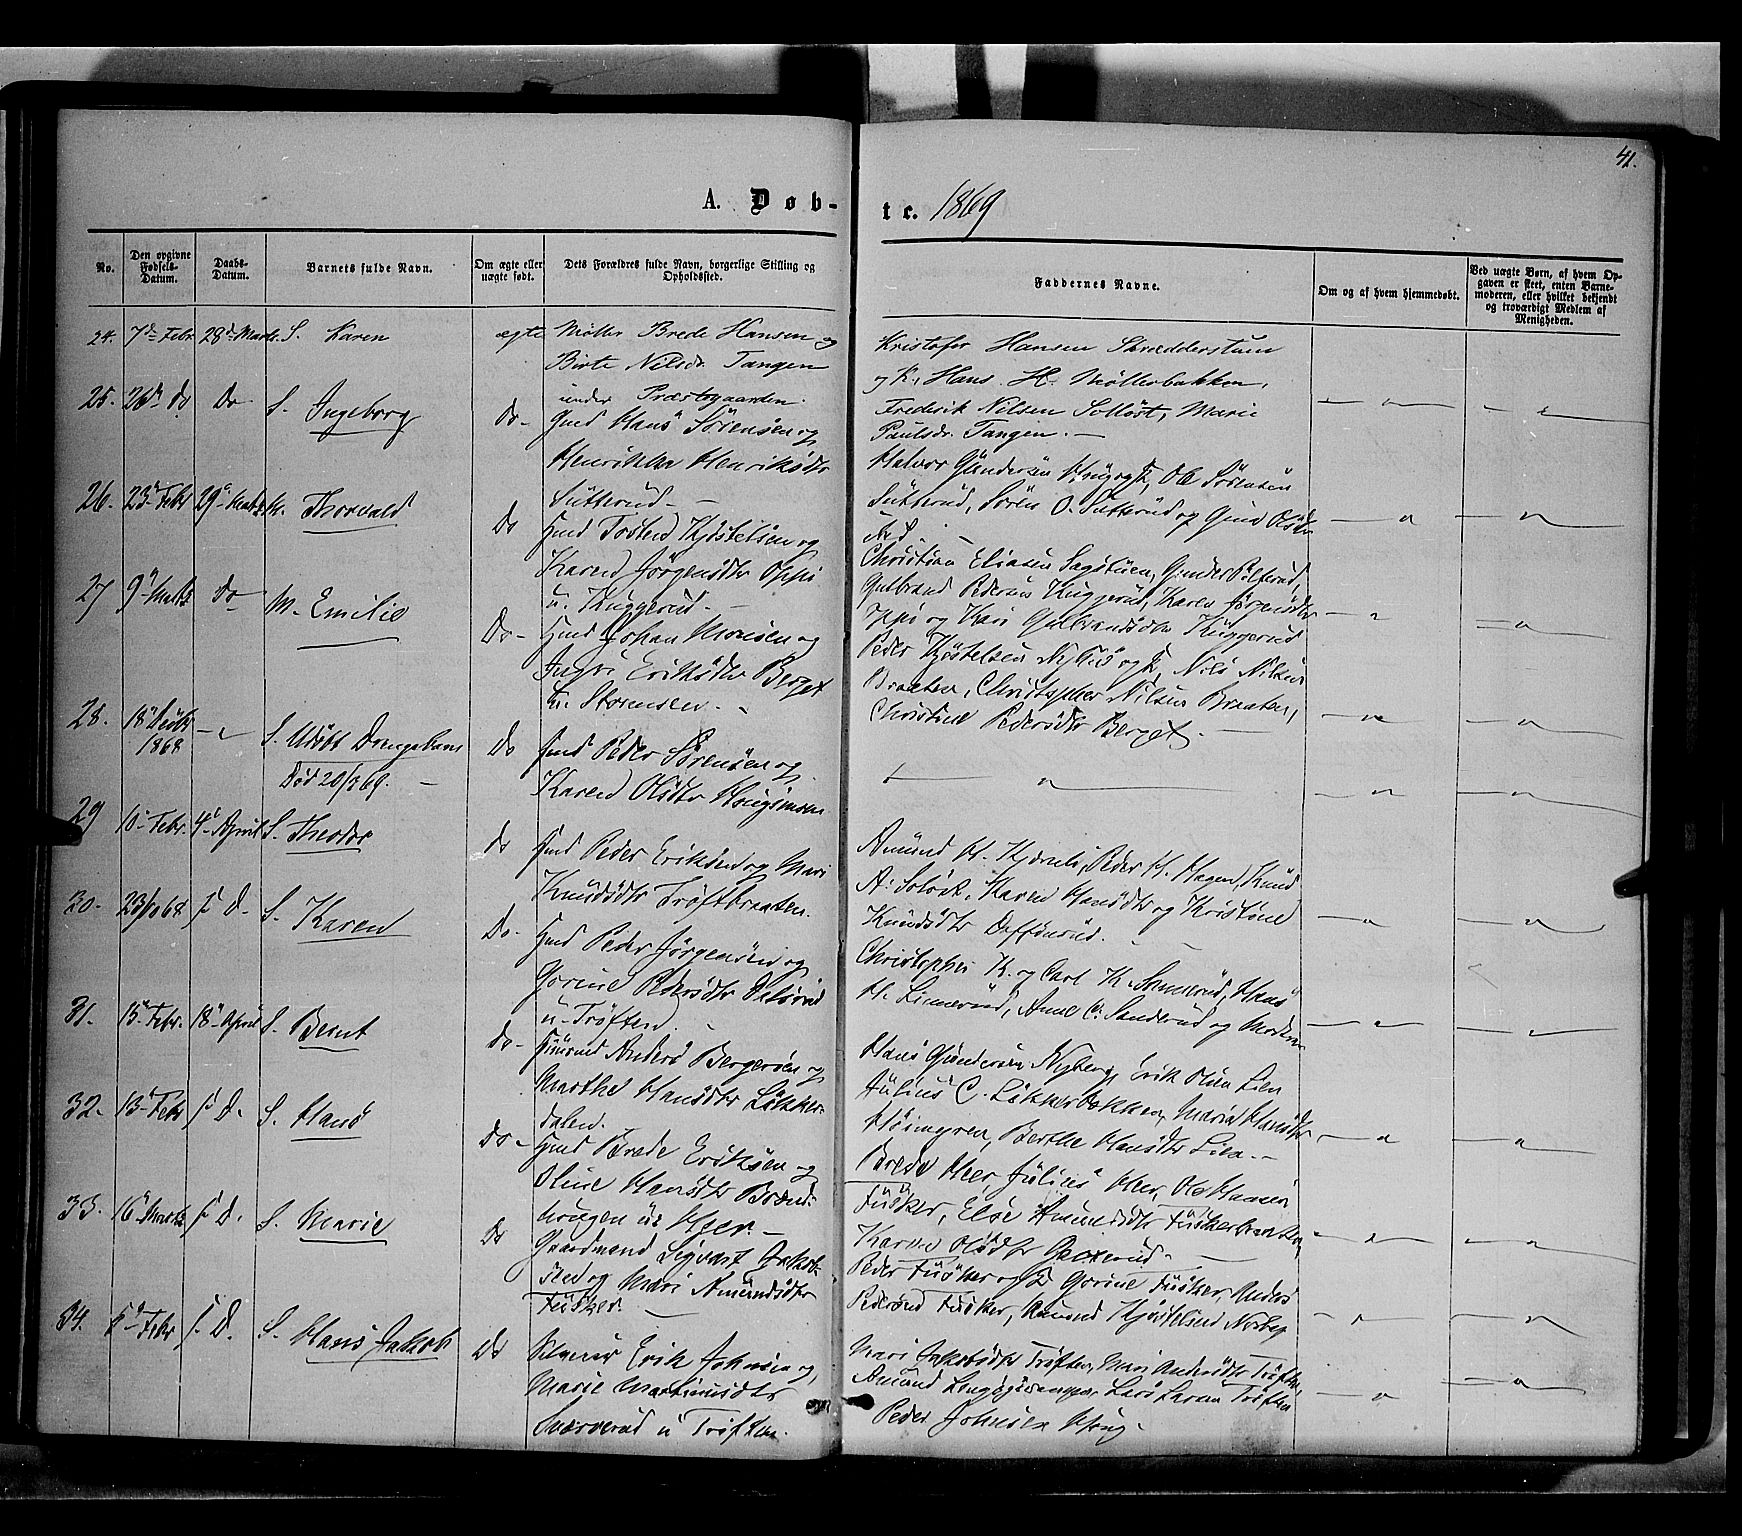 41.
A. Døb-
te. 1869
No.
Den opgivne Fødsels-Datum.
Daabs-Datum.
Barnets fulde Navn.
Om ægte eller uægte født.
Dets Forældres fulde Navn, borgerlige Stilling og Opholdssted.
Faddernes Navne.
Om og af hvem hjemmedøbt.
Ved uægte Børn, af hvem Opgaven er skeet, enten Barnemoderen, eller hvilket bekjendt og troværdigt Medlem af Menigheden.
24. 7de Febr. 28de Marts. S. Karen ægte
Møller Brede Hansen og
Birte Nilsdr. Tangen
under Præstegaarden.
Kristofer Hansen Skrædderstuen
og K., Hans H. Møllerbakken,
Frederik Nilsen Solløst, Marie
Paulsdr. Tangen.
25. 26de do Do S. Ingeborg Do-
Gmd Hans Sörensen og
Henrikke Henriksdtr
Sutterud
Halvor Gundersen Haug og K, Ole Sörensen
Sutterud, Sören O. Sutterud og Olsdtr
26. 23de Febr 29de Marts M. Thorvald Do
Hmd Tosten Kjöstelsen og
Karen Jörgensdtr Oppi
u. Kuggerud.
Christian Eliasen Sagstuen, Gunder
Gulbrand Pedersen Kuggerud, Karen Jörgensdtr
Oppi og Kari Gulbrandsdtr Kuggerud
27 9de Marts Do M. Emilie Do-
Hmd Johan Monsen og
Ingri Eriksdtr Berget
u. Storensen.
Peder Kjöstelsen og K, Nils Nilsen
Braaten, Christopher Nilsen Braaten,
Christine Pedersdtr Berget.
28. 18de 1868 S. Udöbt Drengebarn Do
Död 20/ 69.
Hmd Peder Sörensen og
Karen Olsdtr
29 10de Febr. 4de April S. Theodor do
Hmd Peder Eriksen og Mari
Knudsdtr Tröftbraaten.
Amund H. Peder H. Hagen, Knud
A. Karen Hansdtr og Kristine
Knudsdtr
30. 68 s. D. S. Karen Do-
Hmd Peder Jörgensen og
Gorine Pedersdtr
u. Tröften.
Christopher K. og Carl K. Hans
H. Anne C. Sanderud og Moderen
31. 15de Febr. 18de April S. Bernt Do-
Anders Bergersen og
Marthe Hansdtr Lökker-
dalen.
Hans Gundersen Nyberg, Erik Olsen Lien
Julius C. Lökkerbakken, Maria Hansdtr
Berthe Hansdtr Lien.
32. 13de Febr s. D. S. Hans Do-
Hmd Brede Eriksen og
Oline Hansdtr Brænd-
haugen u. Heer.
Brede Heer Julius Heer, Ole Hansen
Fusker, Else Amundsdtr Fuskerbraaten,
Karen Olsdtr
33. 16de Marts s. D. S. Marie Do
Gaardmand Sigvart Jakob-
sen og Mari Amundsdtr
Fusker.
Peder Fusker og K Gorine Fusker, Anders
Pedersen Fusker, Amund Kjöstelsen
34. 5de Febr s. D. S. Hans Jakob Do
Selveier Erik Johnsen og
Marie Martinusdtr
Sværverud u Tröften.
Mari Jakobsdtr Tröften, Mari Andersdtr Tröften,
Amund Lars Larsen Tröften
Peder Johnsen Haug.